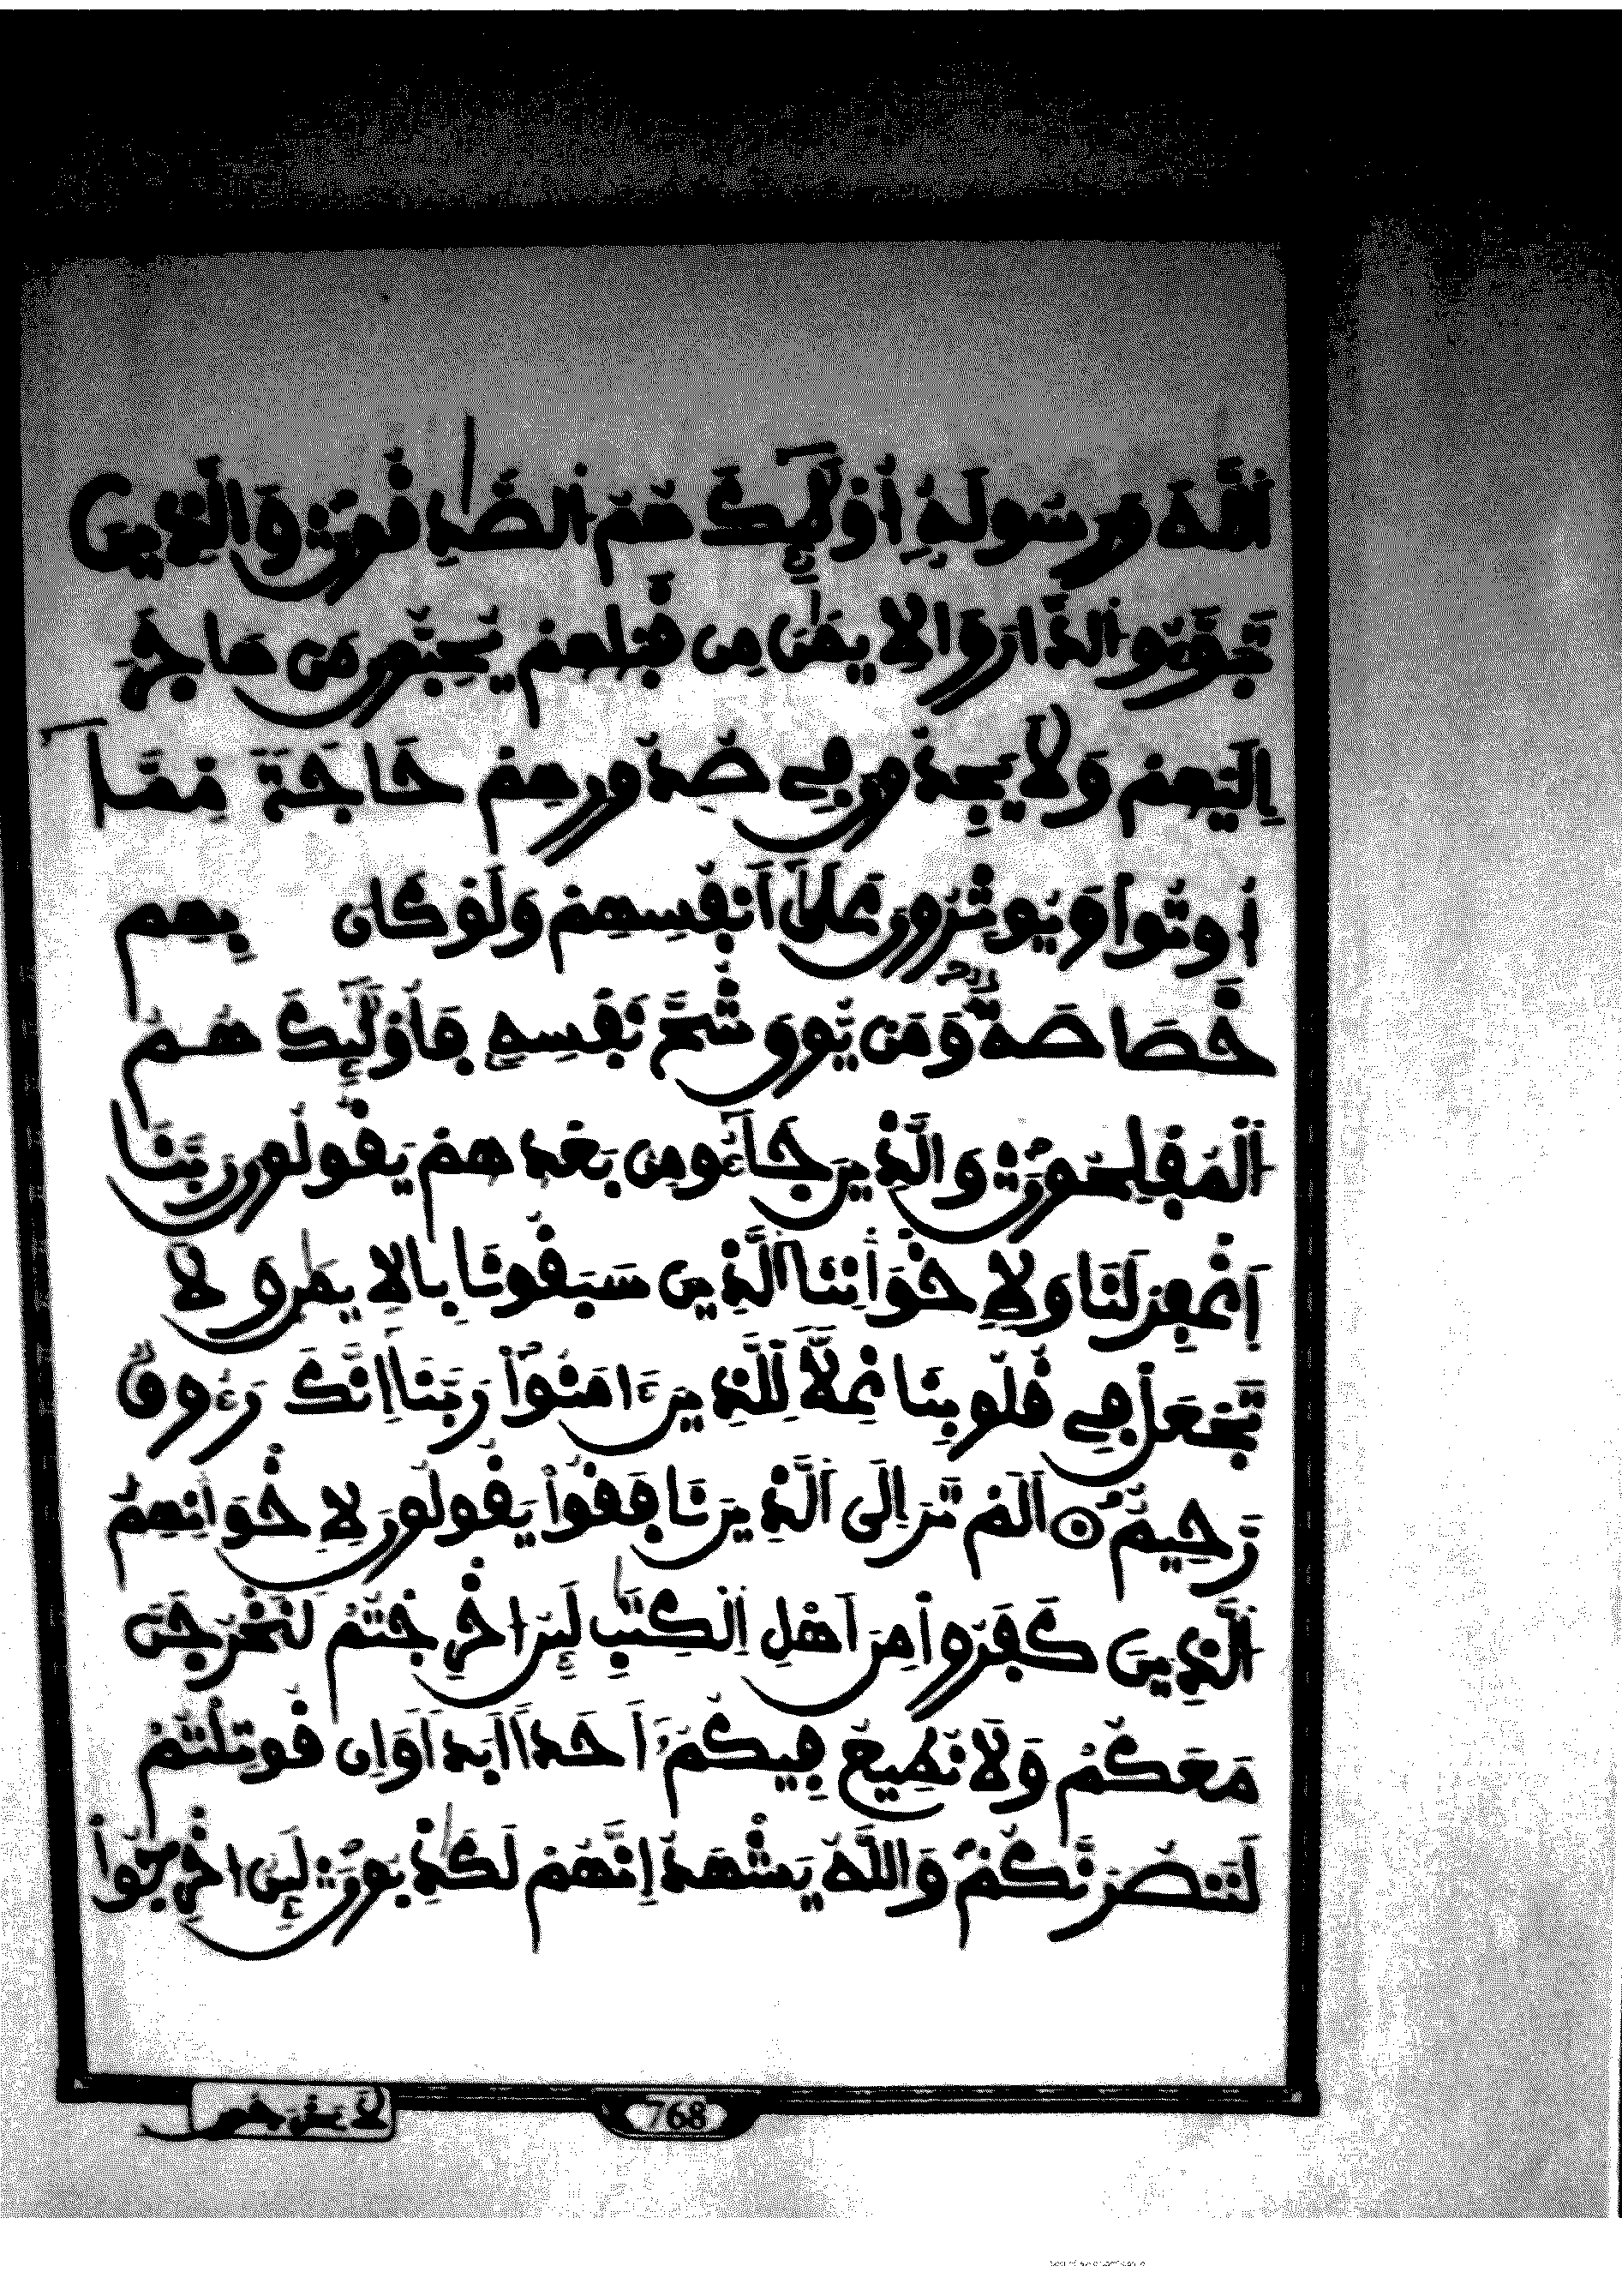 اَللَّهَ وَرَسُولَهُۥٓ أُوْلَٰٓئِكَ هُمُ اَلصَّٰدِقُونَ وَالَّذِينَ
تَبَوَّءُو اَلدَّارَ وَالِايمَٰنَ مِن قَبْلِهِمْ يُحِبُّونَ مَنْ هَاجَرَ
إِلَيْهِمْ وَلَا يَجِدُونَ فِي صُدُورِهِمْ حَاجَةً مِّمَّآ
أُوتُوا وَيُوثِرُونَ عَلَىٰٓ أَنفُسِهِمْ وَلَوْ كَانَ بِهِمْ
خَصَاصَةٌ وَمَن يُّوقَ شُحَّ نَفْسِهِۦ فَأُوْلَٰٓئِكَ هُمُ
اَلْمُفْلِحُونَ وَالَّذِينَ جَآءُو مِن بَعْدِهِمْ يَقُولُونَ رَبَّنَا
اَغْفِرْ لَنَا وَلِإِخْوَانِنَا اَلَّذِينَ سَبَقُونَا بِالِايمَٰنِ وَلَا
تَجْعَلْ فِي قُلُوبِنَا غِلًّا لِّلَّذِينَ ءَامَنُواْ رَبَّنَا إِنَّكَ رَءُوفٌ
رَّحِيمٌ ۝ أَلَمْ تَرَ إِلَى اَلَّذِينَ نَافَقُواْ يَقُولُونَ لِإِخْوَانِهِمُ
اُلَّذِينَ كَفَرُوا مِنَ اَهْلِ اِلْكِتَٰبِ لَئِنُ اخْرِجْتُمْ لَنَخْرُجَنَّ
مَعَكُمْ وَلَا نُطِيعُ فِيكُمُۥٓ أَحَداً اَبَداً اَوَإِن قُوتِلْتُمْ
لَنَنصُرَنَّكُمْ وَاللَّهُ يَشْهَدُ إِنَّهُمْ لَكَٰذِبُونَ لَئِنُ اخْرِجُواْ
لَا يَخْرُجُونَ
768